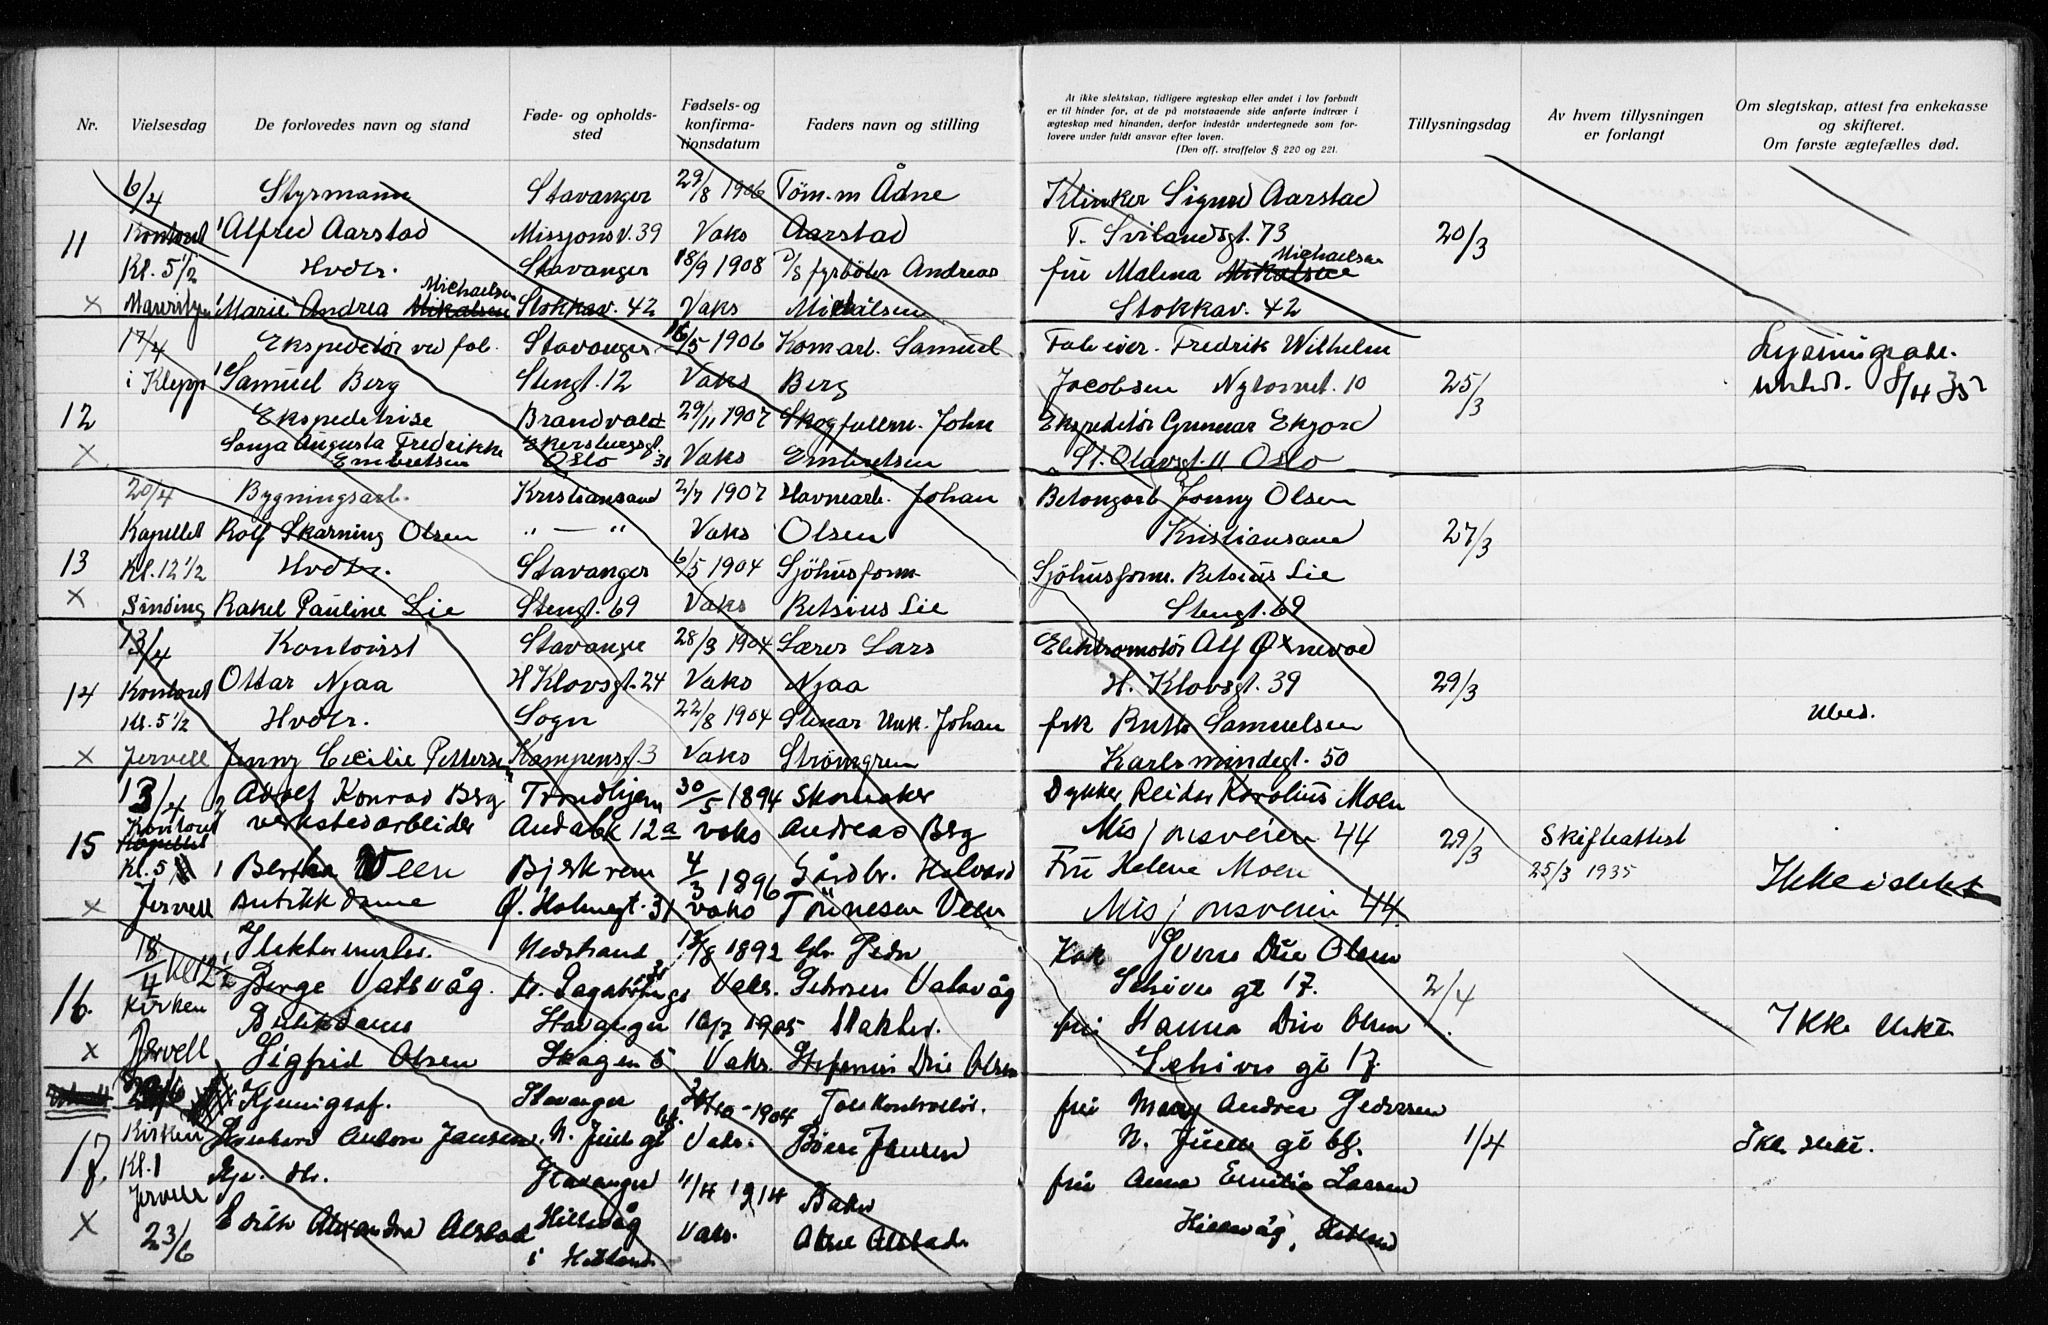 Nr.
Vielsesdag
De forlovedes navn og stand
Føde- og opholds-
sted
Fødsels- og
konfirma-
tionsdatum
Faders navn og stilling
At ikke slektskap, tidligere ægteskap eller andet i lov forbudt
er til hinder for, at de på motstaaende side anførte indtrær i
ægteskap med hinanden, derfor indestår undertegnede som for-
lovere under fuldt ansvar efter loven.
(Den off. straffelov § 220 og 221.
Tillysningsdag
Av hvem tillysningen
er forlangt
Om slegtskap, attest fra enkekasse
og skifteret.
Om første ægtefælles død.
6/4 Styrmann Stavanger 29/8 1906 Tøm.m Ådne Klinker Sigurd Aarstad
11 Kontoret Alfred Aarstad Missjonsv. 39 Vaks Aarstad T. Svilandsgt. 73 20/3
Kl. 5 1/2 Hvdtr. Stavanger 18/9 1908 D/S fyrbøter Andreas fru Malena Mikalsen Michaelsen
x Marie Andrea Mikalsen Michaelsen Stokkav. 42 Vaks Stokkav. 42
17/4 Ekspeditør ved fab. Stavanger 16/5 1906 Komarb. Samuel Fab eier. Fredrik Wilhelm
i Klepp Samuel Berg Stengt. 12 Vaks Berg Jacobsen Nytorvet. 10 25/3 8/4 35
12 Ekspeditrise Brandval 29/11 1907 Skogfullm. John Ekspeditør Gunnar
x Sonja Augusta Fredrikke Embretsen Oslo 31 Vaks Embretsen St. Olavsgt. 11 Oslo
20/4 Bygningsarb. Kristiansand 2/7 1907 Havnearb. Johan Betongarb Jonny Olsen
Kapellet Rolf Skarning Olsen " — " Vaks Olsen Kristiansand 27/3
13 Kl. 12 1/2 Hvdtr. Stavanger 6/5 1904 Sjöhusform. Sjöhusform. Retsius Lie
x Sinding Rakel Pauline Lie Stengt. 69 Vaks Retsius Lie Stengt. 69
13/4 Kontorist Stavanger 28/3 1904 Lærer Lars Elektromotör Alf Øxnevad
14 Kontoret Ottar Njaa H Klovsgt. 24 Vaks Njaa H. Klovsgt. 39 29/3
Kl. 5 1/2 Hvdtr. Sogn 22/8 1904 Johan frk Ruth Samuelsen
x Jervell Jenny Cecilie Pettersen Kampensgt. 3 Vaks Strömgren Karlsmindegt. 50
13/4 Adolf Konrad Berg Trondhjem 30/5 1894 Skomaker Dykker Reidar Karolius Moen
15 Kontoret Kapellet verkstedarbeider 12a vaks Andreas Berg Misjonsveien 44 29/3 Skifteattest
Kl. 5 Bertha Veen Bjerkrem 4/3 1896 Gårdbr. Halvard Fru Helene Moen 25/3 1935 Ikke i slekt
x Jervell Butikkdame Ø. Holmegt. 31 vaks Tönnesen Veen Misjonsveien 44.
18/4 Kl 12 1/2 Nedstrand 8 1892 Peder Kok Sverre Due Olsen
16. Børge Vatsvåg. Vaks. Petersen Vatsvåg gt 17. 2/4
Kirken Butikdame Stavanger 10/7 1905 fru Hanna Due Olsen Ikke slekt
x Jervell Sigfrid Olsen Skagen 5 Vaks. Due Olsen gt 17.
Kjemigraf. Stavanger 10-1904 Tolekontrollör. fru Mary Andrea Pedersen
17. Kirken Anton Jansen N. Juels gt Vaks. Jansen N. Juels gt 1/4 Ikke slekt.
Kl. 1 Stavanger 4/4 1914 Baker fru Anna Emilie Larsen
x Jervell Edith Alexandra Alstad Hillevåg Vaks. Alstad Hillevåg, Hetland
23/6 i Hetland